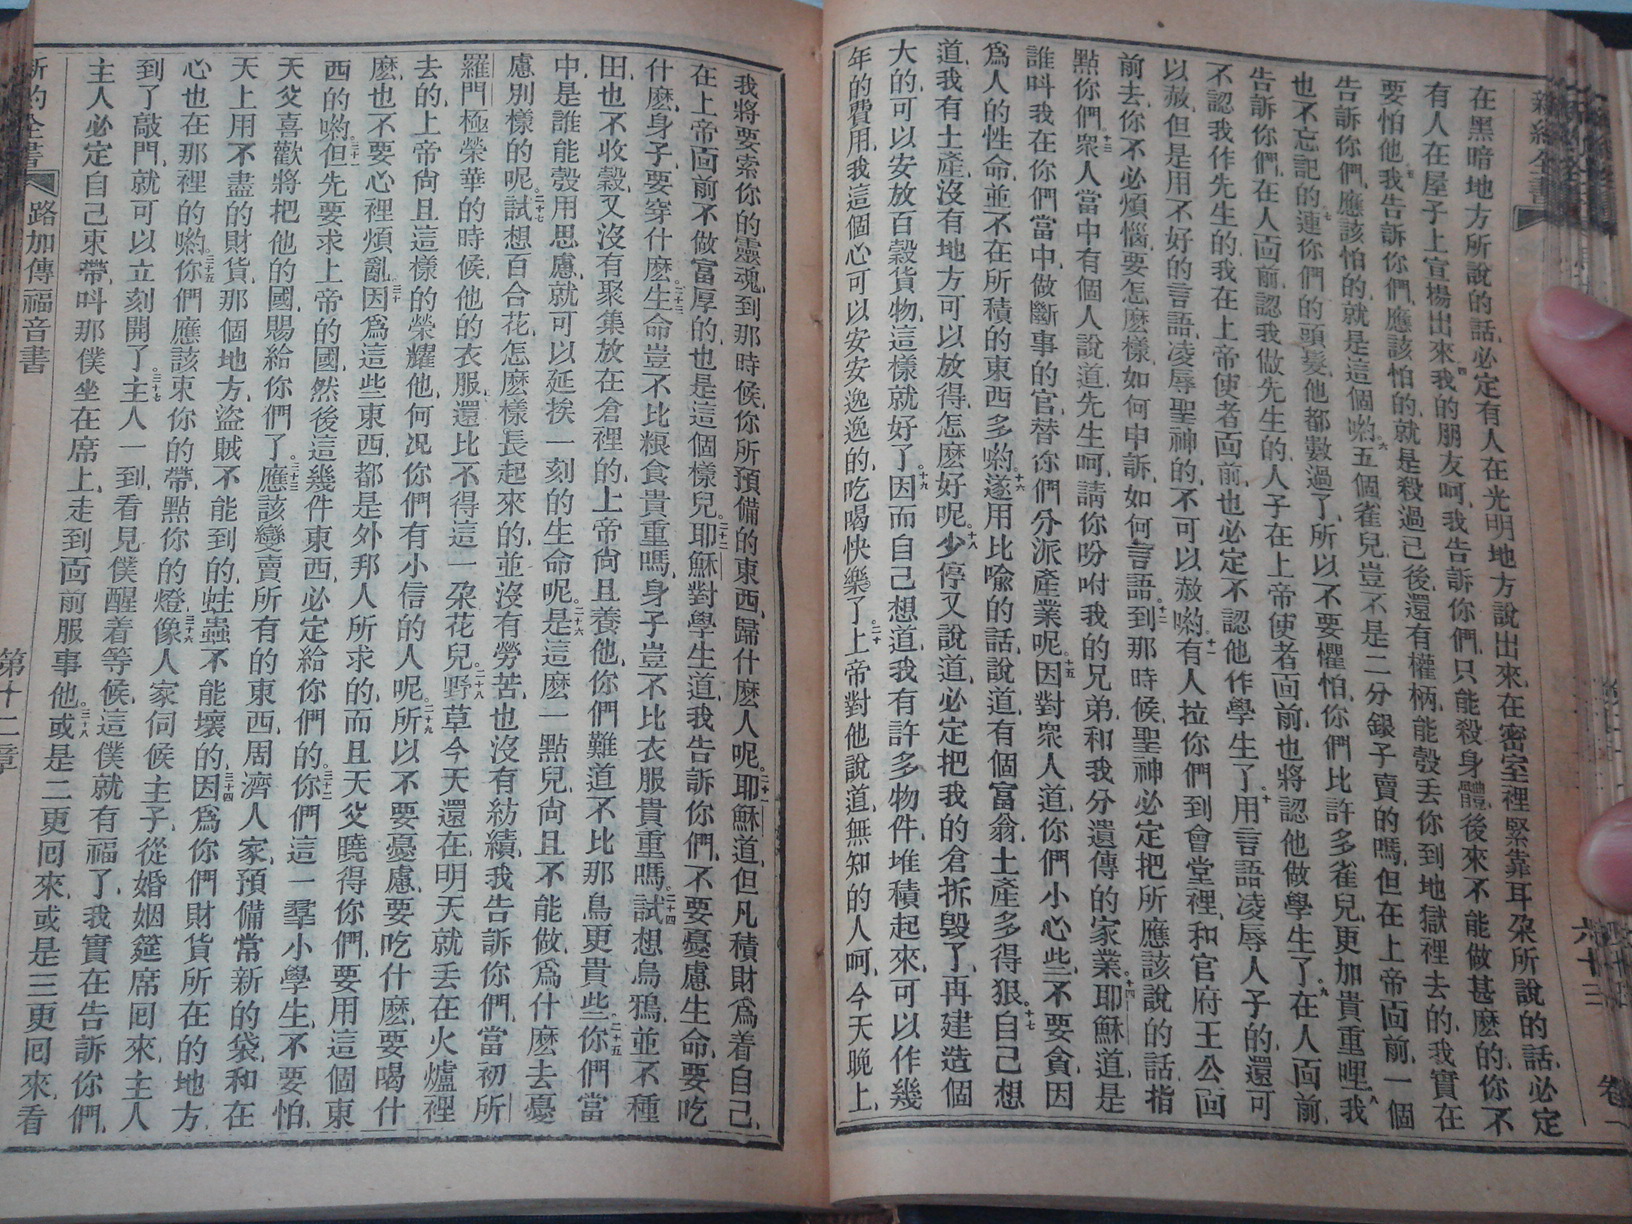 新約全書 六十三 卷一
在黑暗地方所說的話、必定有人在光明地方說出來、在密室裡緊靠耳朶所說的話、必定
有人在屋子上宣揚出來、四我的朋友呵、我告訴你們、只能殺身體、後來不能做甚麽的、你不
要怕他、五我告訴你們、應該怕的、就是殺過已後、還有權柄、能彀丟你到地獄裡去的、我實在
告訴你們、應該怕的、就是這個喲。六五個雀兒、豈不是二分銀子賣的嗎、但在上帝面前、一個
也不忘記的、七連你們的頭髮、他都數過了、所以不要懼怕、你們比許多雀兒、更加貴重哩、八我
告訴你們、在人面前、認我做先生的、人子在上帝使者面前、也將認他做學生了、九在人面前、
不認我作先生的、我在上帝使者面前、也必定不認他作學生了、十用言語凌辱人子的、還可
以赦、但是用不好的言語、凌辱聖神的、不可以赦喲、十一有人拉你們到會堂裡、和官府王公面
前去、你不必煩惱、要怎麽樣、如何申訴、如何言語、十二到那時候、聖神必定把所應該說的話、指
點你們、十三衆人當中、有個人說道、先生呵、請你吩咐我的兄弟、和我分遺傳的家業、十四耶穌道、是
誰呌我在你們當中、做斷事的官、替你們分派產業呢、十五因對衆人道、你們小心些、不要貪、因
爲人的性命、並不在所積的東西多喲、十六遂用比喻的話、說道、有個富翁、土產多得狠、十七自己想
道、我有土產、沒有地方可以放得、怎麽好呢、十八少停又說道、必定把我的倉拆毁了、再建造個
大的、可以安放百穀貨物、這樣就好了、十九因而自己想道、我有許多物件、堆積起來、可以作幾
年的費用、我這個心、可以安安逸逸的、吃喝快樂了、二十上帝對他說道、無知的人呵、今天晚上、
我將要索你的靈魂、到那時候、你所預備的東西、歸什麽人呢。二十一耶穌道、但凡積財爲着自己、
在上帝面前不做富厚的、也是這個樣兒。二十二耶穌對學生道、我告訴你們、不要憂慮生命、要吃
什麽、身子、要穿什麽。二十三生命豈不比粮食貴重嗎、身子豈不比衣服貴重嗎、二十四試想烏鴉、並不種
田、也不收穀、又沒有聚集放在倉裡的、上帝尙且養他、你們難道不比那鳥更貴些、二十五你們當
中、是誰能彀用思慮、就可以延挨一刻的生命呢、二十六是這麽一點兒、尙且不能做、爲什麽去憂
慮別樣的呢。二十七試想百合花、怎麽樣長起來的、並沒有勞苦、也沒有紡績、我告訴你們、當初所
羅門極榮華的時候、他的衣服、還比不得這一朶花兒、二十八野草今天還在、明天就丟在火爐裡
去的、上帝尙且這樣的榮耀他、何况你們有小信的人呢、二十九所以不要憂慮、要吃什麽、要喝什
麽、也不要心裡煩亂、三十因爲這些東西、都是外邦人所求的、而且天父曉得你們、要用這個東
西的喲。三十一但先要求上帝的國、然後這幾件東西、必定給你們的、三十二你們這一羣小學生不要怕、
天父喜歡將把他的國、賜給你們了。三十三應該變賣所有的東西、周濟人家、預備常新的袋、和在
天上用不盡的財貨、那個地方、盜賊不能到的、蛀蟲不能壞的、三十四因爲你們財貨所在的地方、
心也在那裡的喲、三十五你們應該束你的帶、點你的燈、三十六像人家伺候主子、從婚姻筵席囘來、主人
到了敲門、就可以立刻開了、三十七主人一到、看見僕醒着等候、這僕就有福了、我實在告訴你們、
主人必定自己束帶、呌那僕坐在席上、走到面前服事他。三十八或是二更囘來、或是三更囘來、看
新約全書 路加傳福音書 第十二章